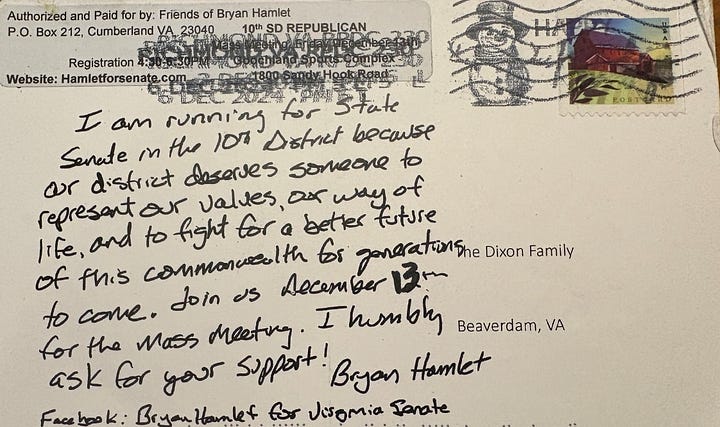 Authorized and Paid for by: Friends of Bryan Hamlet
P.O. Box 212, Cumberland VA, 23040 10th SD REPUBLICAN
RICHMOND VA RPDC 230
Mass Meeting, Friday December 13th
Registration 4:30-6:30PM Goochland Sports Complex
Website: Hamletforsenate.com 1800 Sandy Hook Road
6 DEC 2024 PM
HAP
USA
POSTCARD
I am running for State
Senate in the 10th District because
our district deserves someone to
represent our values, our way of
life, and to fight for a better future
of this commonwealth for generations
to come. Join us December 13th
for the Mass Meeting. I humbly
ask for your support!
Bryan Hamlet
Facebook: Bryan Hamlet for Virginia Senate
The Dixon Family
Beaverdam, VA